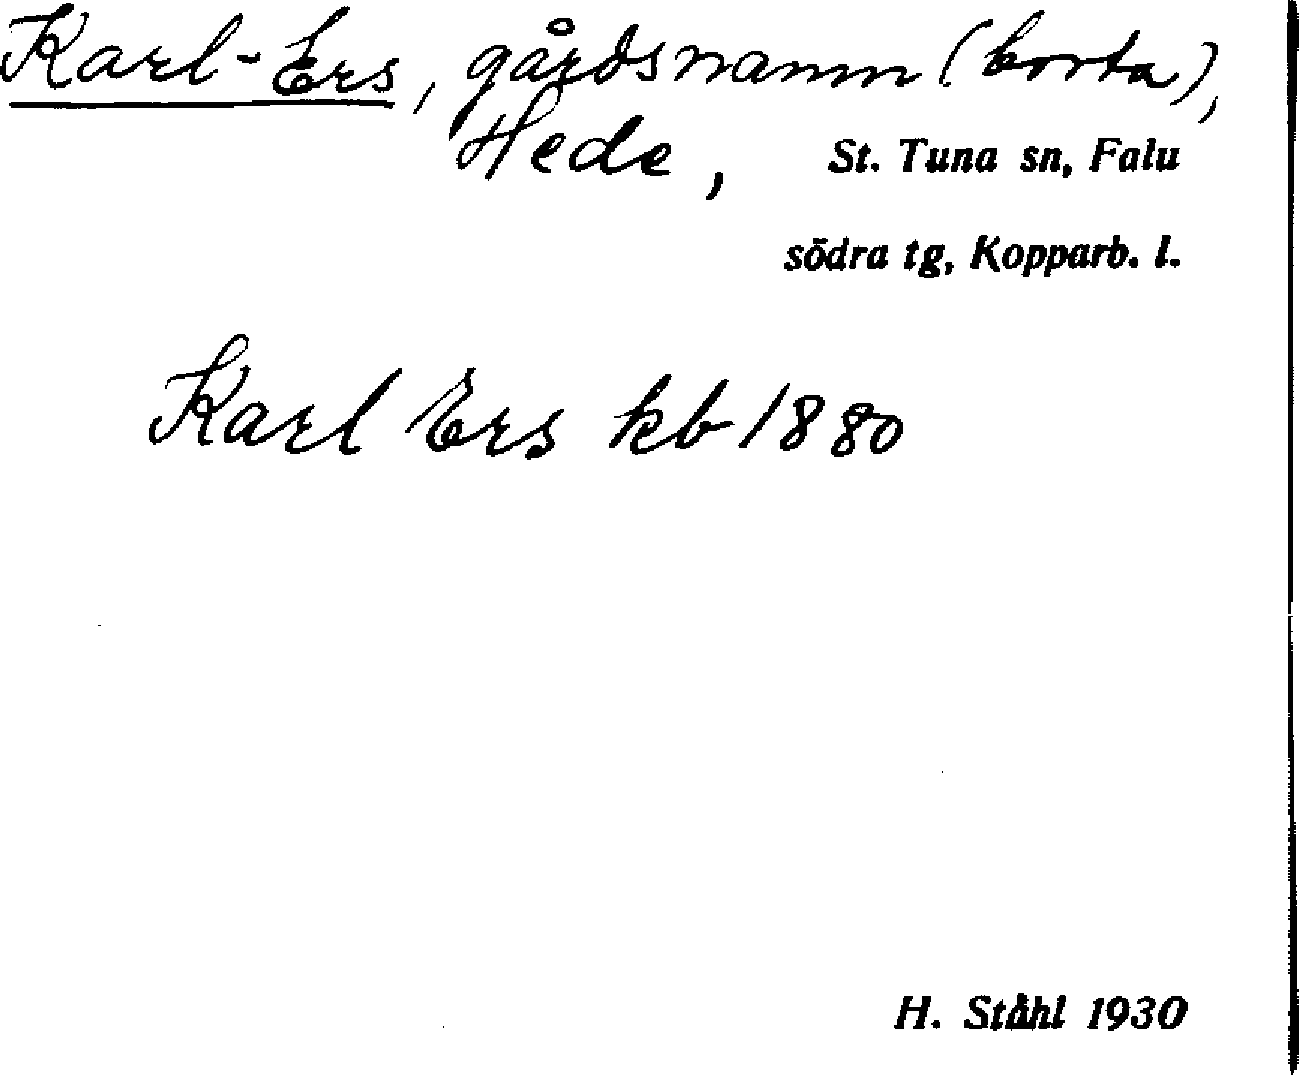 Karl-Ers, gårdsnamn (borta),
Hede, St. Tuna sn, Falu
södra tg, Kopparb. l.
Karl Ers kb 1880
H. Ståhl 1930